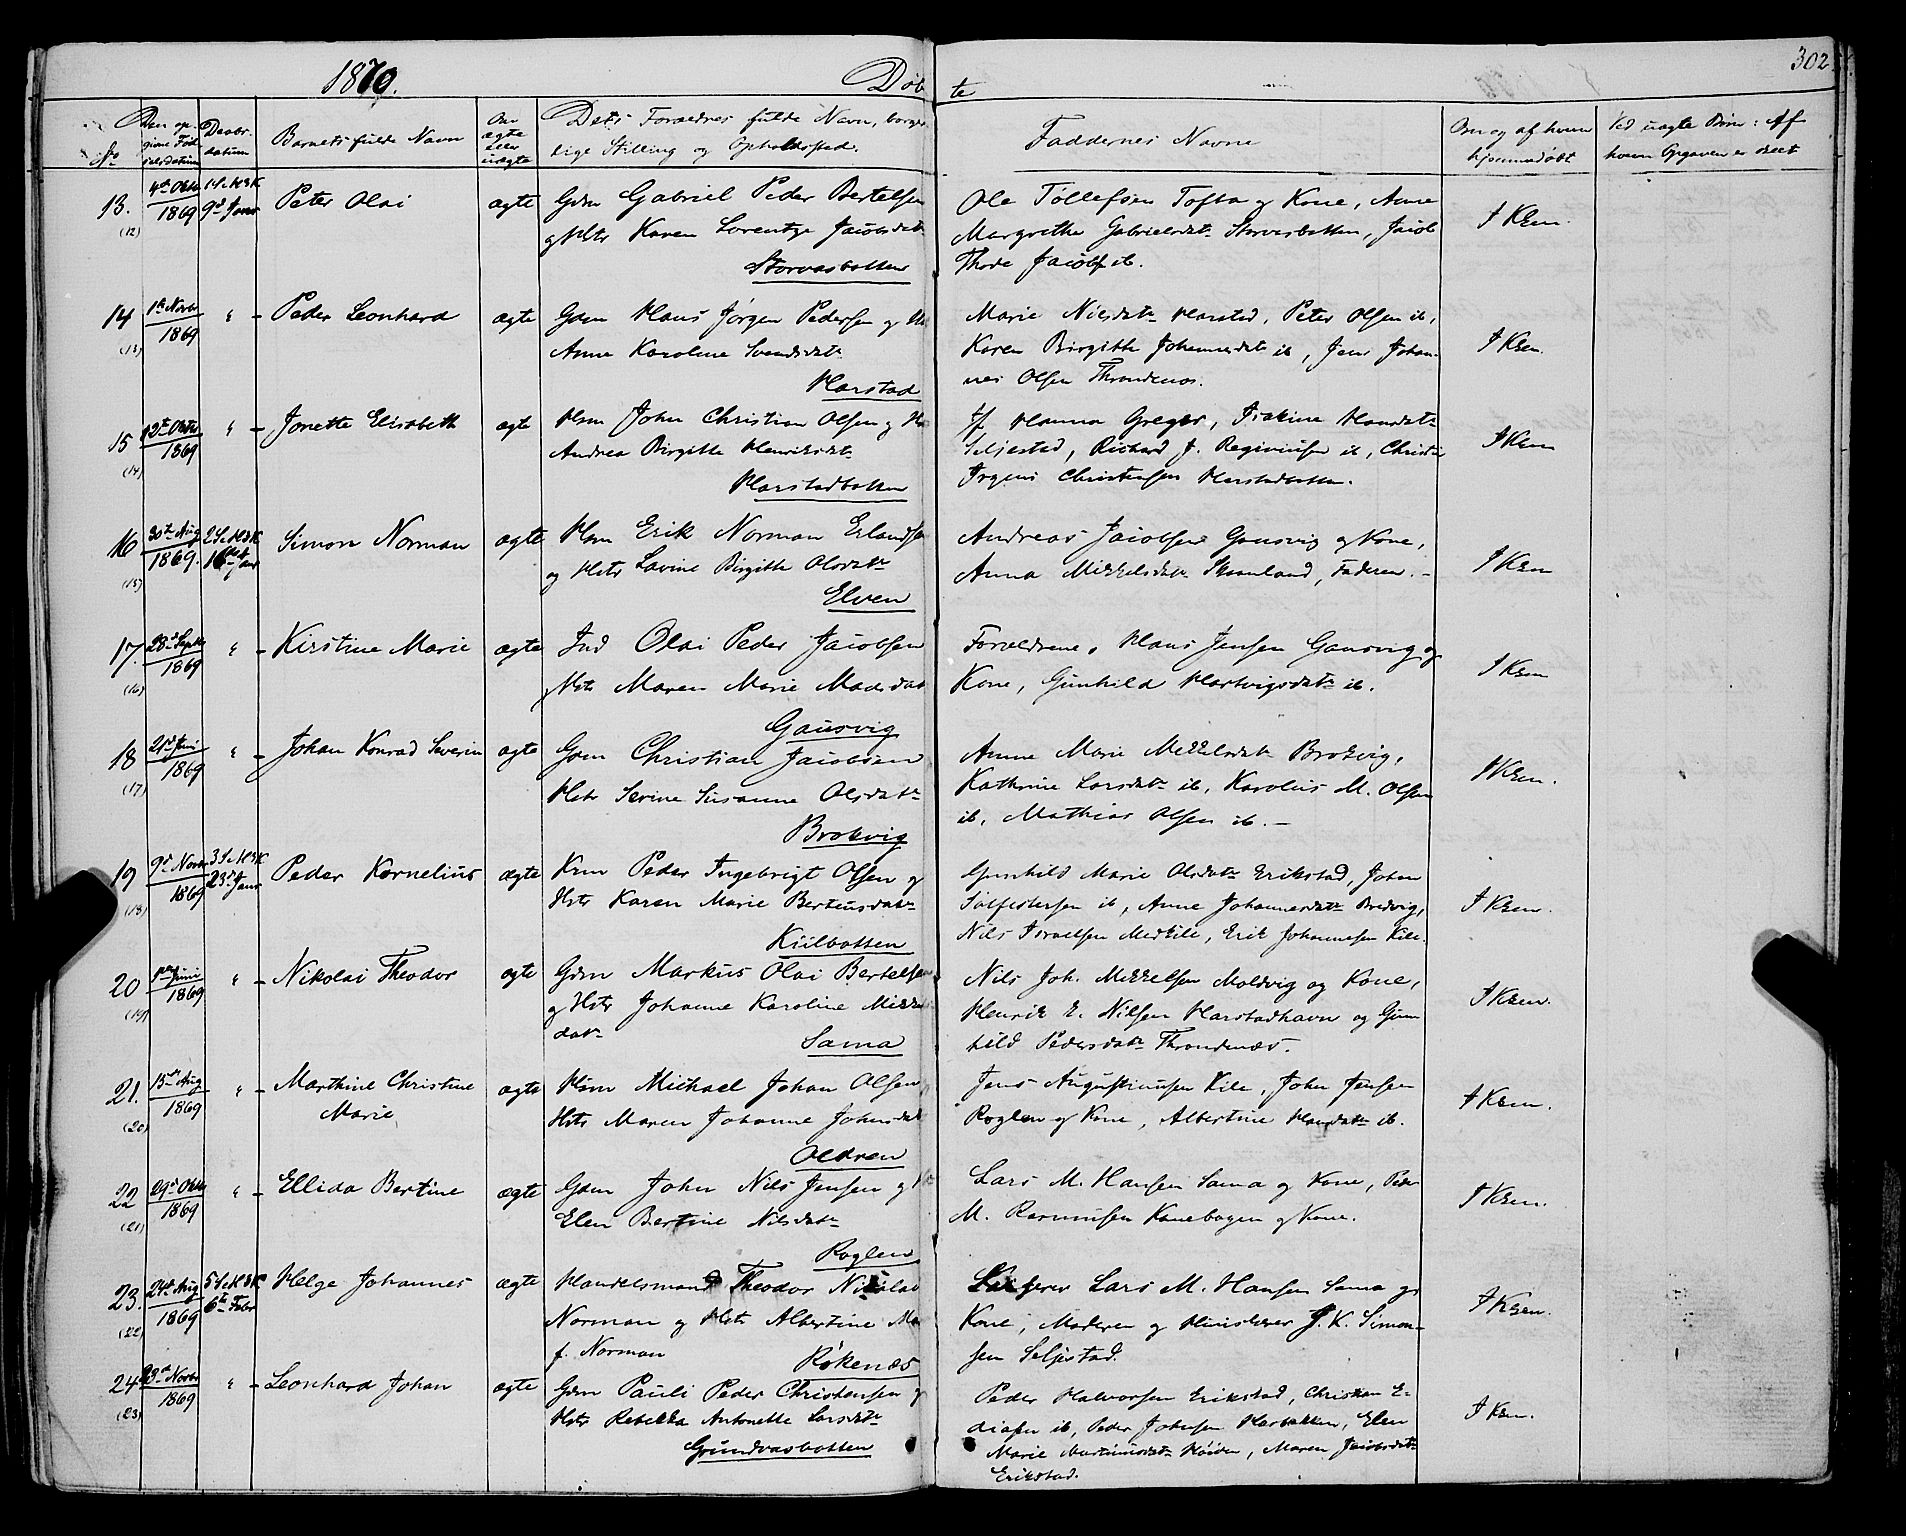 1870.
Døb te
302
No
Den op-
givne Fød-
selsdatum
Daabs-
datum
Barnets fulde Navn
Om
ægte
eller
uægte
Dets Forældres fulde Navn, borger-
lige Stilling og Opholdssted.
Faddernes Navne
Om og af hvem
hjemmedøbt
Ved uægte Børn: Af
hvem Opgaven er skeet
13. (12)
4de Oktbr 1869
1 S e H3K 9de Janr
Peter Olai
ægte
Gdm Gabriel Peder Bertelsen
og Hstr Karen Lorentze Jacobsdatr
Storvasbotten
Ole Tollefsen Tofta og Kone, Anne
Margrethe Gabrielsdatr Storvasbotten, Jacob
Thode Jacobs. ib.
I Kken.
14 (13)
1ste Novbr 1869
" -
Peder Leonhard
ægte
Gdm Hans Jørgen Pedersen og H
Anne Karoline Svendsdatr
Harstad
Marie Nilsdatr Harstad, Peter Olsen ib,
Karen Birgitte Johannesdatr ib, Jens Johan-
nes Olsen Throndenæs.
I Kken.
15 (14)
12te Oktbr 1869
" -
Jonette Elisabeth
ægte
Hsm John Christian Olsen og H
Andrea Birgitte Henriksdatr
Harstadbotten
Jf Hanna Greger, Isakine Hansdatr
Seljestad, Richard J. Reginiusen ib, Christ.
Irgens Christensen Harstadbotten.
I Kken
16 (15)
30te Aug 1869.
2 S e H3K 16de Janr
Simon Norman
ægte
Hsm Erik Norman Erlandsen
og Hstr Lavine Birgitte Olsdatr
Elven
Andreas Jacobsen Gausvig og Kone,
Anna Mikkelsdatr Skaanland, Faderen. -
I Kken
17. (16)
28de Septbr 1869
" -
Kirstine Marie
ægte
Ind Olai Peder Jacobsen
og Hstr Maren Marie Madsdat
Gausvig
Forældrene, Hans Jensen Gausvig og
Kone, Gunhild Hartvigsdatr ib.
I Kken
18 (17)
21de Juni 1869
" -
Johan Konrad Severin
ægte
Gdm Christian Jacobsen
Hstr Serine Susanne Olsdatr
Brokvig
Anne Marie Mikkelsdatr Brokvig,
Kathrine Larsdatr ib, Karolius M. Olsen
ib, Mathias Olsen ib. -
I Kken.
19 (18)
9de Novbr 1869
3 S e H3K 23de Janr
Peder Kornelius
ægte
Kmn Peder Ingebrigt Olsen og
Hstr Karen Marie Berteusdatr
Kiilbotten
Gunhild Marie Olsdatr Erikstad, Johan
Salfestersen ib, Anne Johannesdatr Bredvig,
Nils Israelsen Medkile, Erik Johannesen Kile.
I Kken.
20 (19)
1ste Juni 1869
" -
Nikolai Theodor
ægte
Gdm Markus Olai Bertelsen
og Hstr Johanne Karoline Mikk
datr
Sama
Nils Joh. Mikkelsen Moldvig og Kone,
Henrik E. Nilsen Harstadhavn og Gun-
hild Pedersdatr Throndenæs.
I Kken.
21. (20)
15de Aug 1869
" -
Marthine Christine
Marie
ægte
Hsm Michael Johan Olsen
Hstr Maren Johanne Johnsdat
Oldren
Jens Augustinusen Kile, John Jensen
Roglen og Kone, Albertine Hansdatr ib.
I Kken.
22 (21)
29de Oktbr 1869
" -
Ellida Bertine
ægte
Gdm John Nils Jensen og H
Elen Bertine Nilsdatr
Roglen
Lars M. Hansen Sama og Kone, Peder
M. Rasmusen Kanebogen og Kone.
I Kken.
23. (22)
24de Aug 1869
5 S e H3K 6te Febr
Helge Johannes
ægte
Handelsmand Theodor Nikolai
Norman og Hstr Albertine Ma
f. Norman
Røkenæs
Lars M. Hansen Sama og
Kone, Moderen og J. K. Simon-
sen Seljestad.
I Kken.
24 (23)
23de Novbr 1869
" -
Leonhard Johan
ægte
Gdm Pauli Peder Christensen og
Hstr Rebekka Antonette Larsdatr
Grundvasbotten
Peder Halvorsen Erikstad, Christen E-
diasen ib, Peder Johnsen Harbakken, Elen
Marie Martinusdatr Høiden, Maren Jacobsdatr
Erikstad.
I Kken.